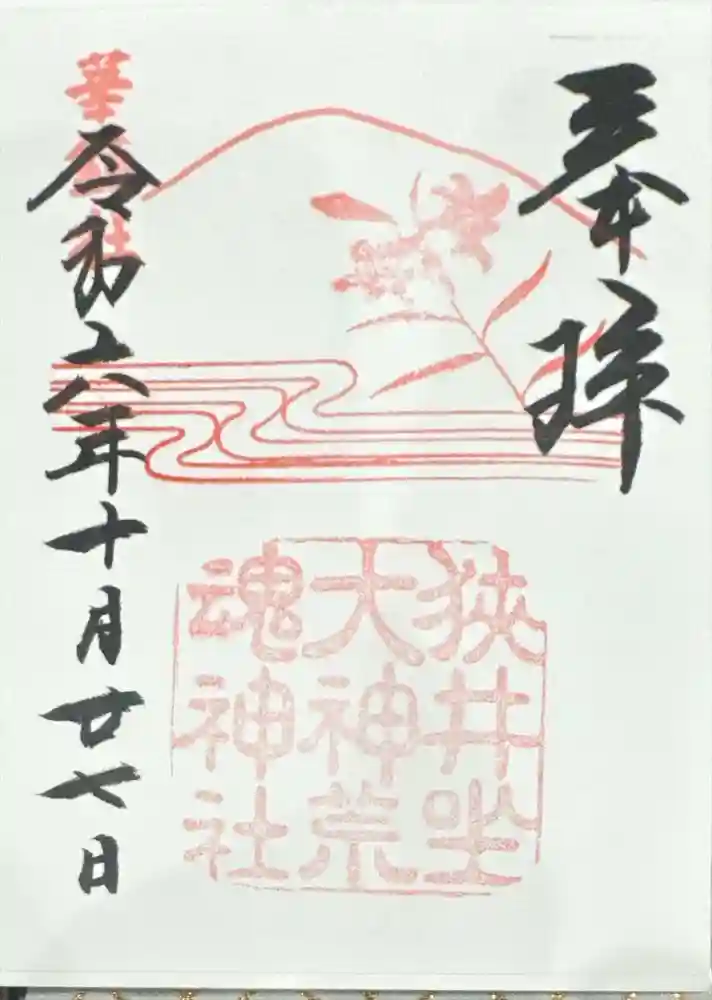 奉拝
狭井坐
大神荒
魂神社
華鎮社
令和六年十月廿七日